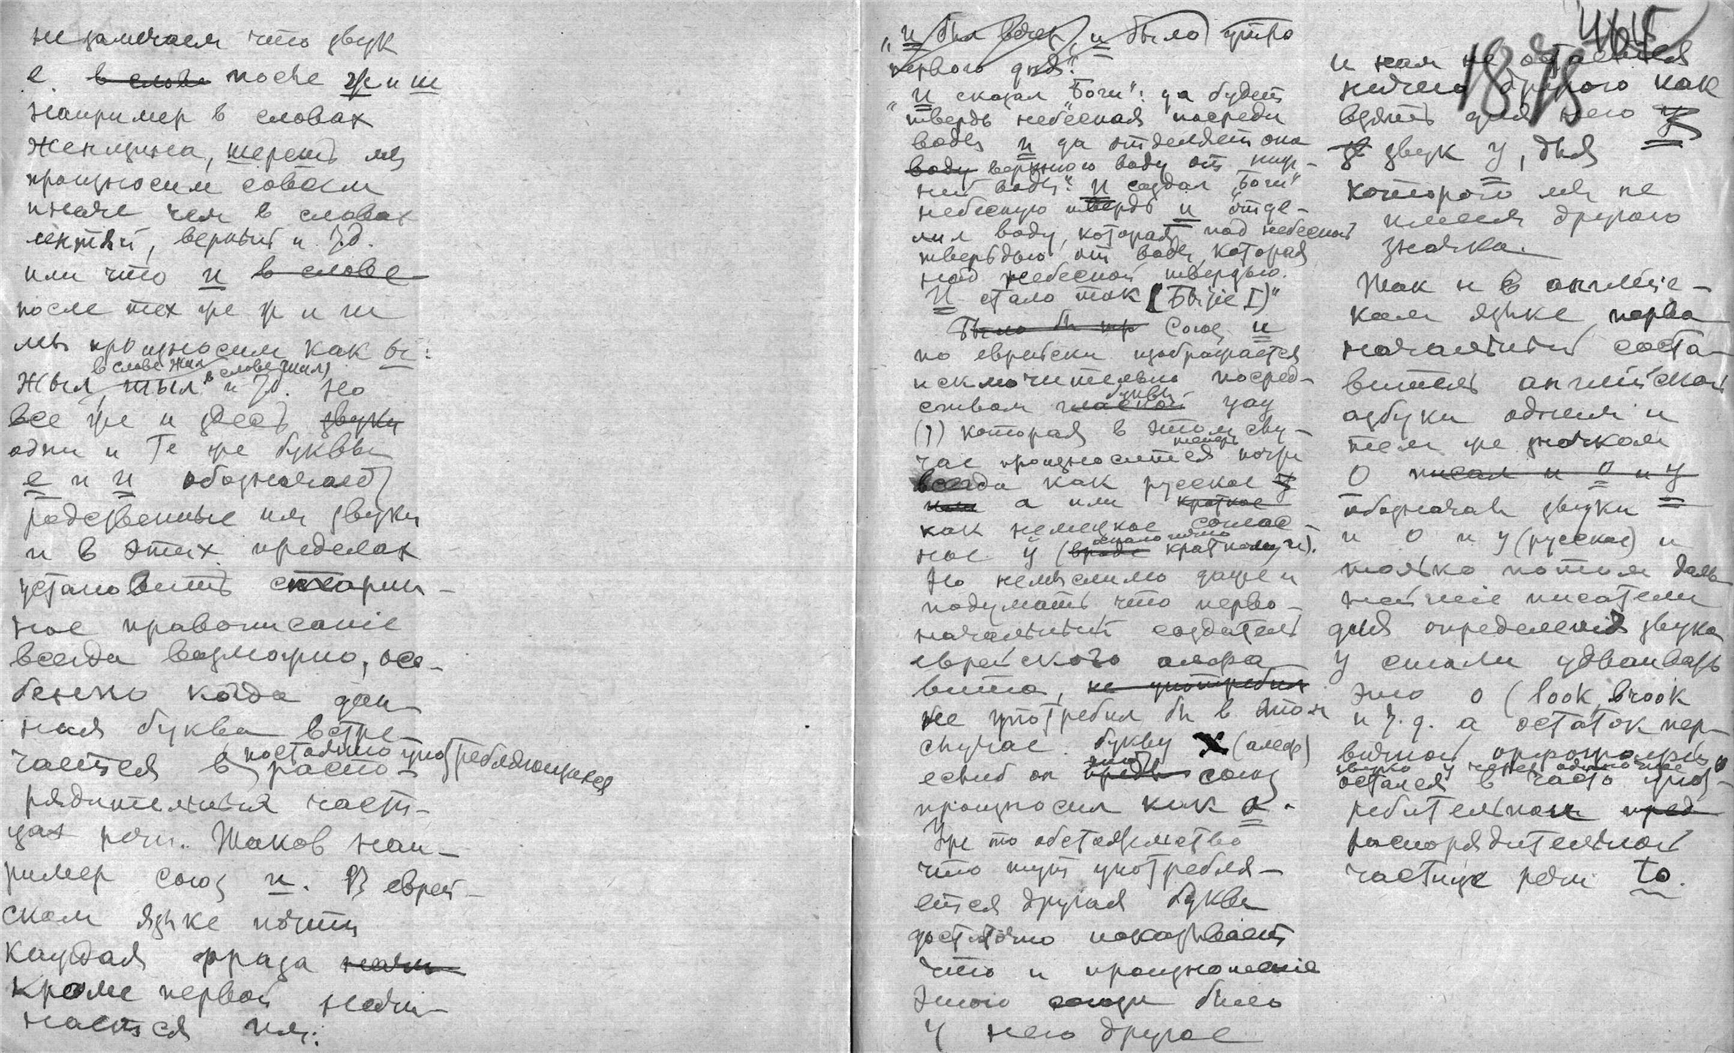 не замечаем что звук
е в слове после ж и ш
например в словах
женщина, шерсть мы
произносим совсем
иначе чем в словах
лентяй, верный и т.д.
или что и в слове
после тех же ж и ш
мы произносим как ы:
в слове жил в слове шил)
жыл, шыл и т.д. Но
все же и здесь звуки
одни и те же буквы
е и и обозначают
родственные им звуки
и в этих пределах
установить старин-
ное правописание
всегда возможно, осо-
бенно когда дан-
ная буква встре-
постоянно употребляющихся
чается в распо-
рядительных част-
цах речи. Таков нап-
ример союз и. В еврей-
ском языке почти
каждая фраза нач
кроме первой начи-
нается им:
„и был вечер, и было утро
первого дня".
„И сказал "Боги": да будет
твердь небесная посреди
воды и да отделяет она
воду верхнюю воду от ниж-
ней воды". И создал "Боги"
небесную твердь и отде-
лил воду, которая под небесной
твердью от воды, которая
над небесной твердью.
И стало так [Бытіе I)"
Было бы пр Союз и
по еврейски изображается
исключительно посред-
буквы
ством гласной уау
(ו) которая в этом слу-
теперь
чае произносится почти
всегда как русское у
или а или краткое
как немецкое соглас-
ное й (вроде краткому и).
Но немыслимо даже и
подумать что перво-
начальный создатель
еврейского алфа-
вита, не употребил
не употребил бы в этом
случае букву א (алеф)
этот
если б он предв союз
произносил как а.
Уже то обстоятельство
что тут употребля-
ется другая буква
достаточно показывает
что и произношеніе
этого союза было
у него другое
и нам не остается
ничего другого как
взять для него у
звук у, для
которого мы не
имеем другого
значка.
Так и в английс-
ком языке перво
начальный соста-
витель английской
азбуки одним и
тем же значком
о писал и о и у
обозначал звуки
и о и у (русское) и
только потом даль-
нейшие писатели
для определения звука
у стали удваивать
это о (look, brook
и т.д. а остаток пер-
вичной орфографии
звука у через одно
остался в часто упот-
ребительном пред
распорядительной
частице речи to.